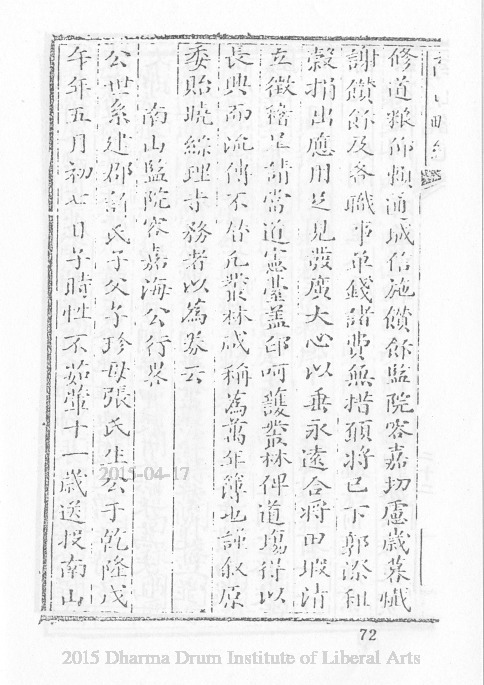 修道粮仰頼通城信施儭餘監院客嘉切慮歲暮懺
謝儭餘及各職事单錢諸費無措預將己下郭添租
穀捐出應用足見發廣大心以垂永遠合將田塅清
立徵籍呈請當道憲臺盖印呵護叢林俾道塲得以
長興而流傳不替凡叢林咸稱為萬年簿也謹叙原
委貽晓綜理寺務者以為券云
南山監院客嘉海公行畧
公世系建郡許氏子父子珍母張氏生公于乾隆戊
午年五月初七日子時性不茹葷十一歲送投南山
72
2015-04-17
2015 Dharma Drum Institute of Liberal Arts